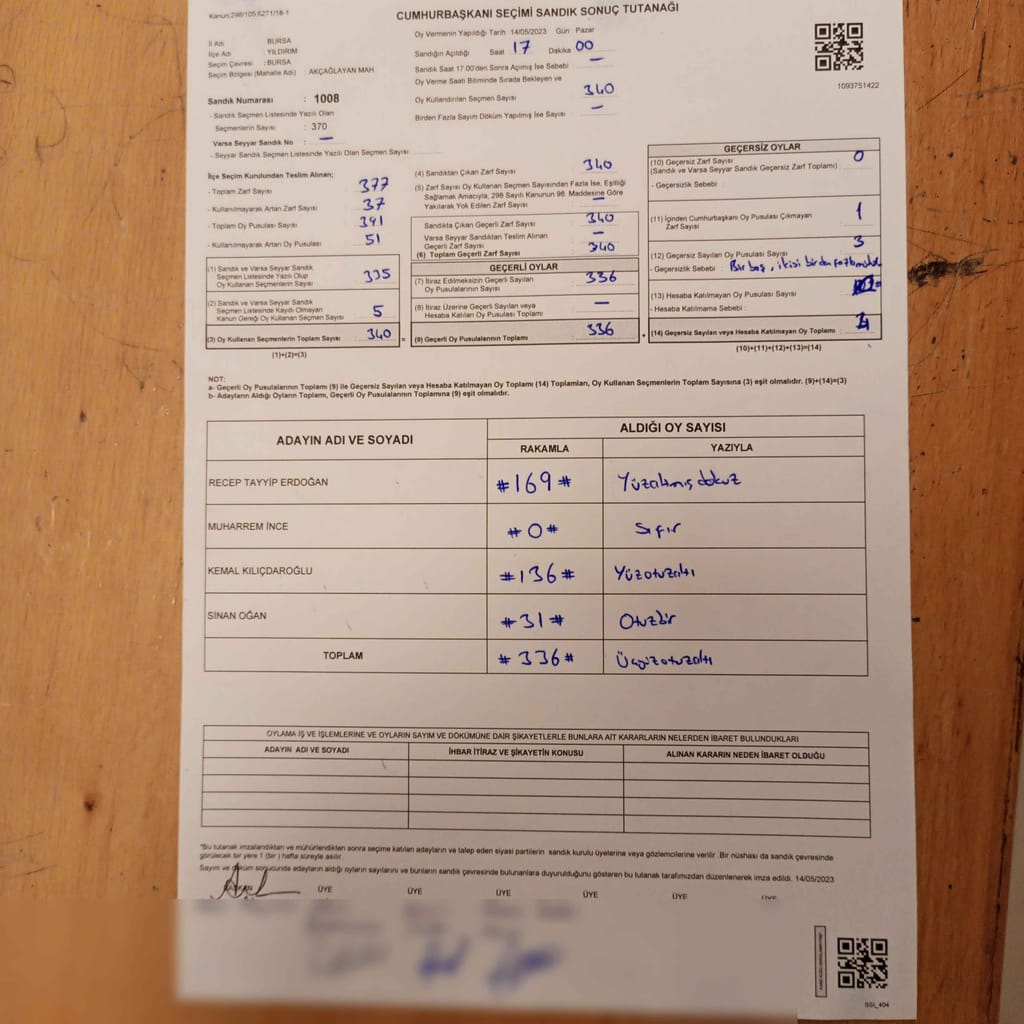 Kanun:298/105.6271/18-1
CUMHURBAŞKANI SEÇİMİ SANDIK SONUÇ TUTANAĞI
İl Adı BURSA
İlçe Adı YILDIRIM
Seçim Çevresi :BURSA
Seçim Bölgesi (Mahalle Adı) AKÇAĞLAYAN MAH
Sandık Numarası : 1008
- Sandık Seçmen Listesinde Yazılı Olan
Seçmenlerin Sayısı : 370
Varsa Seyyar Sandık No : —
- Seyyar Sandık Seçmen Listesinde Yazılı Olan Seçmen Sayısı
Oy Vermenin Yapıldığı Tarih 14/05/2023 Gün Pazar
Sandığın Açıldığı Saat 17 Dakika 00
Sandık Saat 17:00'den Sonra Açılmış İse Sebebi : —
Oy Verme Saati Bitiminde Sırada Bekleyen ve
Oy Kullandırılan Seçmen Sayısı 340
Birden Fazla Sayım Döküm Yapılmış İse Sayısı —
1093751422
İlçe Seçim Kurulundan Teslim Alınan;
- Toplam Zarf Sayısı 377
- Kullanılmayarak Artan Zarf Sayısı 37
- Toplam Oy Pusulası Sayısı 391
- Kullanılmayarak Artan Oy Pusulası 51
(1) Sandık ve Varsa Seyyar Sandık
Seçmen Listesinde Yazılı Olup
Oy Kullanan Seçmenlerin Sayısı 335
(2) Sandık ve Varsa Seyyar Sandık
Seçmen Listesinde Kayıtlı Olmayan
Kanun Gereği Oy Kullanan Seçmen Sayısı 5
(3) Oy Kullanan Seçmenlerin Toplam Sayısı 340
(1)+(2)=(3)
(4) Sandıktan Çıkan Zarf Sayısı 340
(5) Zarf Sayısı Oy Kullanan Seçmen Sayısından Fazla İse, Eşitliği
Sağlamak Amacıyla, 298 Sayılı Kanunun 98. Maddesine Göre
Yakılarak Yok Edilen Zarf Sayısı —
Sandıkta Çıkan Geçerli Zarf Sayısı 340
Varsa Seyyar Sandıktan Teslim Alınan
Geçerli Zarf Sayısı —
(6) Toplam Geçerli Zarf Sayısı 340
GEÇERLİ OYLAR
(7) İtiraz Edilmeksizin Geçerli Sayılan
Oy Pusulalarının Sayısı 336
(8) İtiraz Üzerine Geçerli Sayılan veya
Hesaba Katılan Oy Pusulası Toplamı —
(9) Geçerli Oy Pusulalarının Toplamı 336
GEÇERSİZ OYLAR
(10) Geçersiz Zarf Sayısı 0
(Sandık ve Varsa Seyyar Sandık Geçersiz Zarf Toplamı)
- Geçersizlik Sebebi :
(11) İçinden Cumhurbaşkanı Oy Pusulası Çıkmayan
Zarf Sayısı 1
(12) Geçersiz Sayılan Oy Pusulası Sayısı 3
- Geçersizlik Sebebi : Bir boş, ikisi birden
(13) Hesaba Katılmayan Oy Pusulası Sayısı
- Hesaba Katılmama Sebebi :
(14) Geçersiz Sayılan veya Hesaba Katılmayan Oy Toplamı : 4
(10)+(11)+(12)+(13)=(14)
NOT:
a- Geçerli Oy Pusulalarının Toplamı (9) ile Geçersiz Sayılan veya Hesaba Katılmayan Oy Toplamı (14) Toplamları, Oy Kullanan Seçmenlerin Toplam Sayısına (3) eşit olmalıdır. (9)+(14)=(3)
b- Adayların Aldığı Oyların Toplamı, Geçerli Oy Pusulalarının Toplamına (9) eşit olmalıdır.
ADAYIN ADI VE SOYADI ALDIĞI OY SAYISI
RAKAMLA YAZIYLA
RECEP TAYYİP ERDOĞAN #169# Yüzaltmış dokuz
MUHARREM İNCE #0# Sıfır
KEMAL KILIÇDAROĞLU #136# Yüzotuzaltı
SİNAN OĞAN #31# Otuzbir
TOPLAM #336# Üçyüzotuzaltı
OYLAMA İŞ VE İŞLEMLERİNE VE OYLARIN SAYIM VE DÖKÜMÜNE DAİR ŞİKAYETLERLE BUNLARA AİT KARARLARIN NELERDEN İBARET BULUNDUKLARI
ADAYIN ADI VE SOYADI İHBAR İTİRAZ VE ŞİKAYETİN KONUSU ALINAN KARARIN NEDEN İBARET OLDUĞU
"Bu tutanak imzalandıktan ve mühürlendikten sonra seçime katılan adayların ve talep eden siyasi partilerin sandık kurulu üyelerine veya gözlemcilerine verilir. Bir nüshası da sandık çevresinde
görülecek bir yere 1 (bir) hafta süreyle asılır.
Sayım ve döküm sonucunda adayların aldığı oyların sayılarını ve bunların sandık çevresinde bulunanlara duyurulduğunu gösteren bu tutanak tarafımızdan düzenlenerek imza edildi. 14/05/2023
BAŞKAN ÜYE ÜYE ÜYE ÜYE ÜYE ÜYE
SSI_404